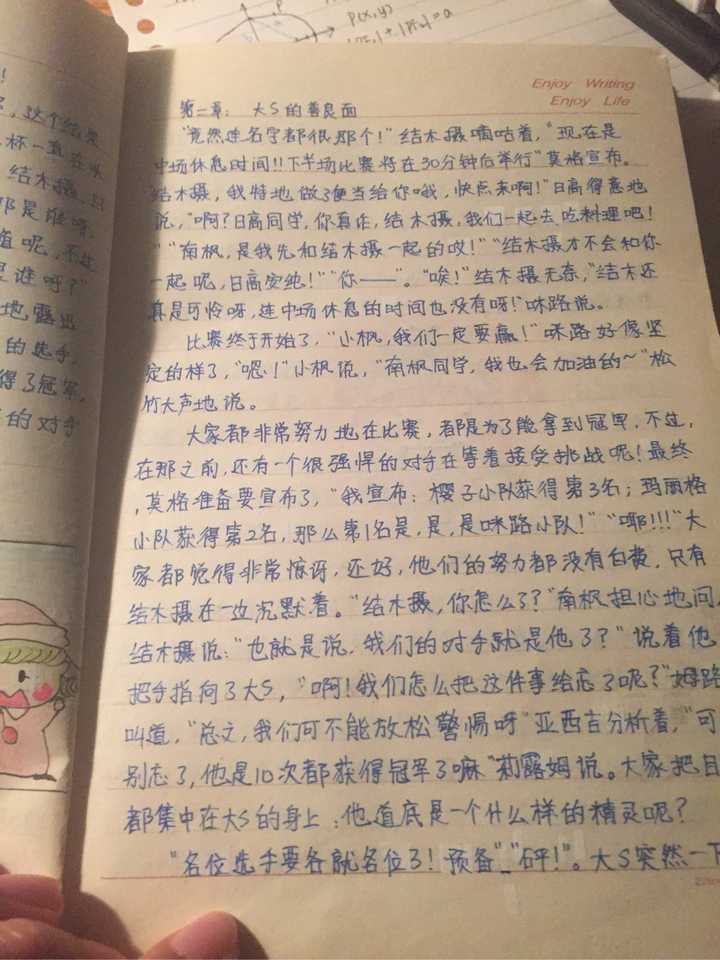 P(x,y)
Enjoy Writing
Enjoy Life
第二章： 大S的善良面
"竟然连名字都很那个！"结木摄嘀咕着，"现在是
中场休息时间!!下半场比赛将在30分钟后举行"莫格宣布。
"结木摄，我特地做了便当给你哦，快点来啊！"日高得意地
说，"啊？日高同学，你真诈，结木摄，我们一起去吃料理吧！
""南枫，是我先和结木摄一起的哎！""结木摄才不会和你
一起呢，日高安纯！""你——"。"唉！"结木摄无奈，"结木还
真是可怜呀，连中场休息的时间也没有呀！"咪路说。
比赛终于开始了，"小枫，我们一定要赢！"咪路好像坚
定的样了，"嗯！"小枫说，"南枫同学，我也会加油的~"松
竹大声地说。
大家都非常努力地在比赛，都是为了能拿到冠军，不过，
在那之前，还有一个很强悍的对手在等着接受挑战呢！最终
，莫格准备要宣布了，"我宣布：樱子小队获得第3名；玛丽格
小队获得第2名，那么第1名是，是，是咪路小队！""耶!!!"大
家都觉得非常惊讶，还好，他们的努力都没有白费，只有
结木摄在一边沉默着。"结木摄，你怎么了？"南枫担心地问，
结木摄说："也就是说，我们的对手就是他了？"说着他
把手指向了大S，"啊！我们怎么把这件事给忘了呢？"姆路
叫道，"总文，我们可不能放松警惕呀"亚西吉分析着，"可
别忘了，他是10次都获得冠军了嘛"莉露姆说。大家把目
都集中在大S的身上：他道底是一个什么样的精灵呢？
"各位选手要各就各位了！预备""砰！"。大S突然一下
这个结果
杯一直在
结木摄
那是谁呀
值呢，不过
是谁呀？"
地露出
的选手，
得了冠军，
的对手